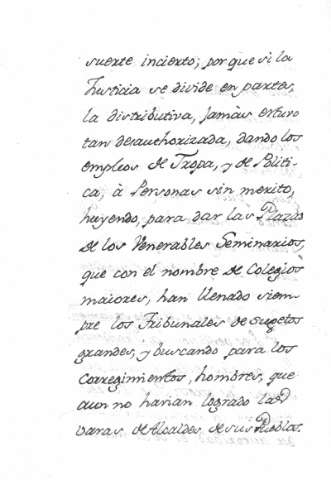 suerte incierto; porque si la
Justicia se divide en partes,
la distributiva, jamàs estuvo
tan desauthorizada, dando los
empleos de Tropa, y de Politi-
ca, à Personas sin merito,
huyendo, para dar las Plazas
de los Venerables Seminarios,
que con el nombre de Colegios
maiores, han llenado siem-
pre los Tribunales de sugetos
grandes, y buscando para los
Corregimientos, hombres, que
aun no harian logrado las
varas de Alcaldes, de sus Pueblos.